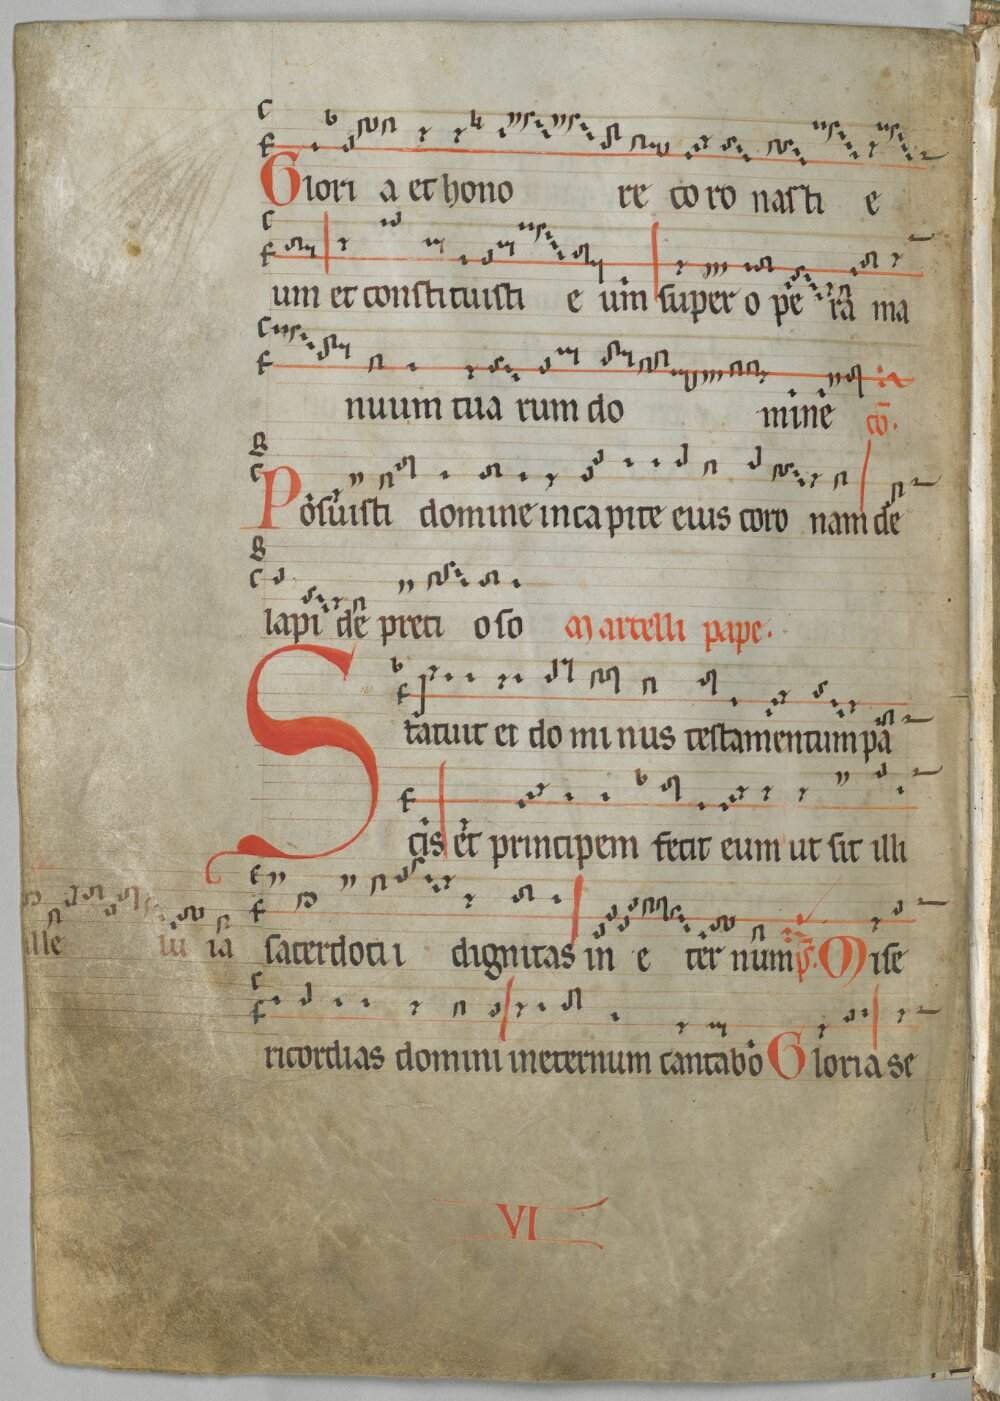 Glori a et hono re co ro nasti e
um et constituisti e um super o pe ra ma
nuum tua rum do mine cō.
Posuisti domine in capite eius coro nam de
lapi de preti oso Martelli pape.
Statuit et do mi nus testamentum pa
cis et principem fecit eum ut sit illi
sacerdotii dignitas in e ter num p̄s. Mise
lle lu ia
ricordias domini in eternum cantabo Gloria se
VI